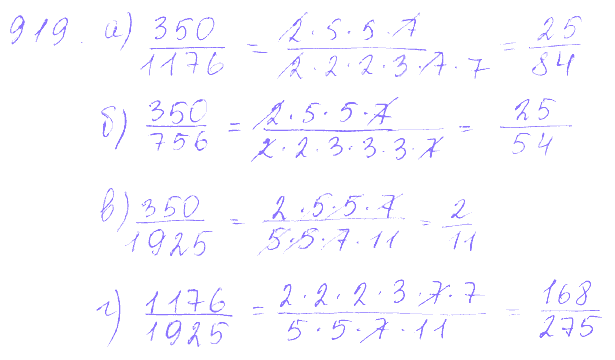 919. а) 350/1176 = 2·5·5·7/2·2·2·3·7·7 = 25/84
б) 350/756 = 2·5·5·7/2·2·3·3·3·7 = 25/54
в) 350/1925 = 2·5·5·7/5·5·7·11 = 2/11
г) 1176/1925 = 2·2·2·3·7·7/5·5·7·11 = 168/275